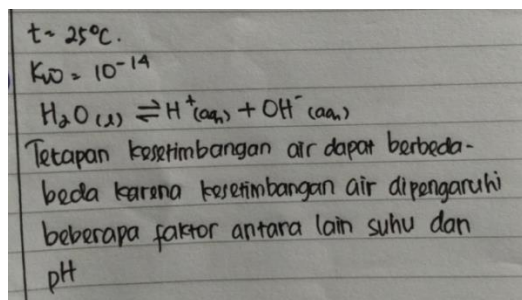 t = 25°C.
Kw = 10⁻¹⁴
H₂O (l) ⇌ H⁺(aq) + OH⁻(aq)
Tetapan kesetimbangan air dapat berbeda-
beda karena kesetimbangan air dipengaruhi
beberapa faktor antara lain suhu dan
pH